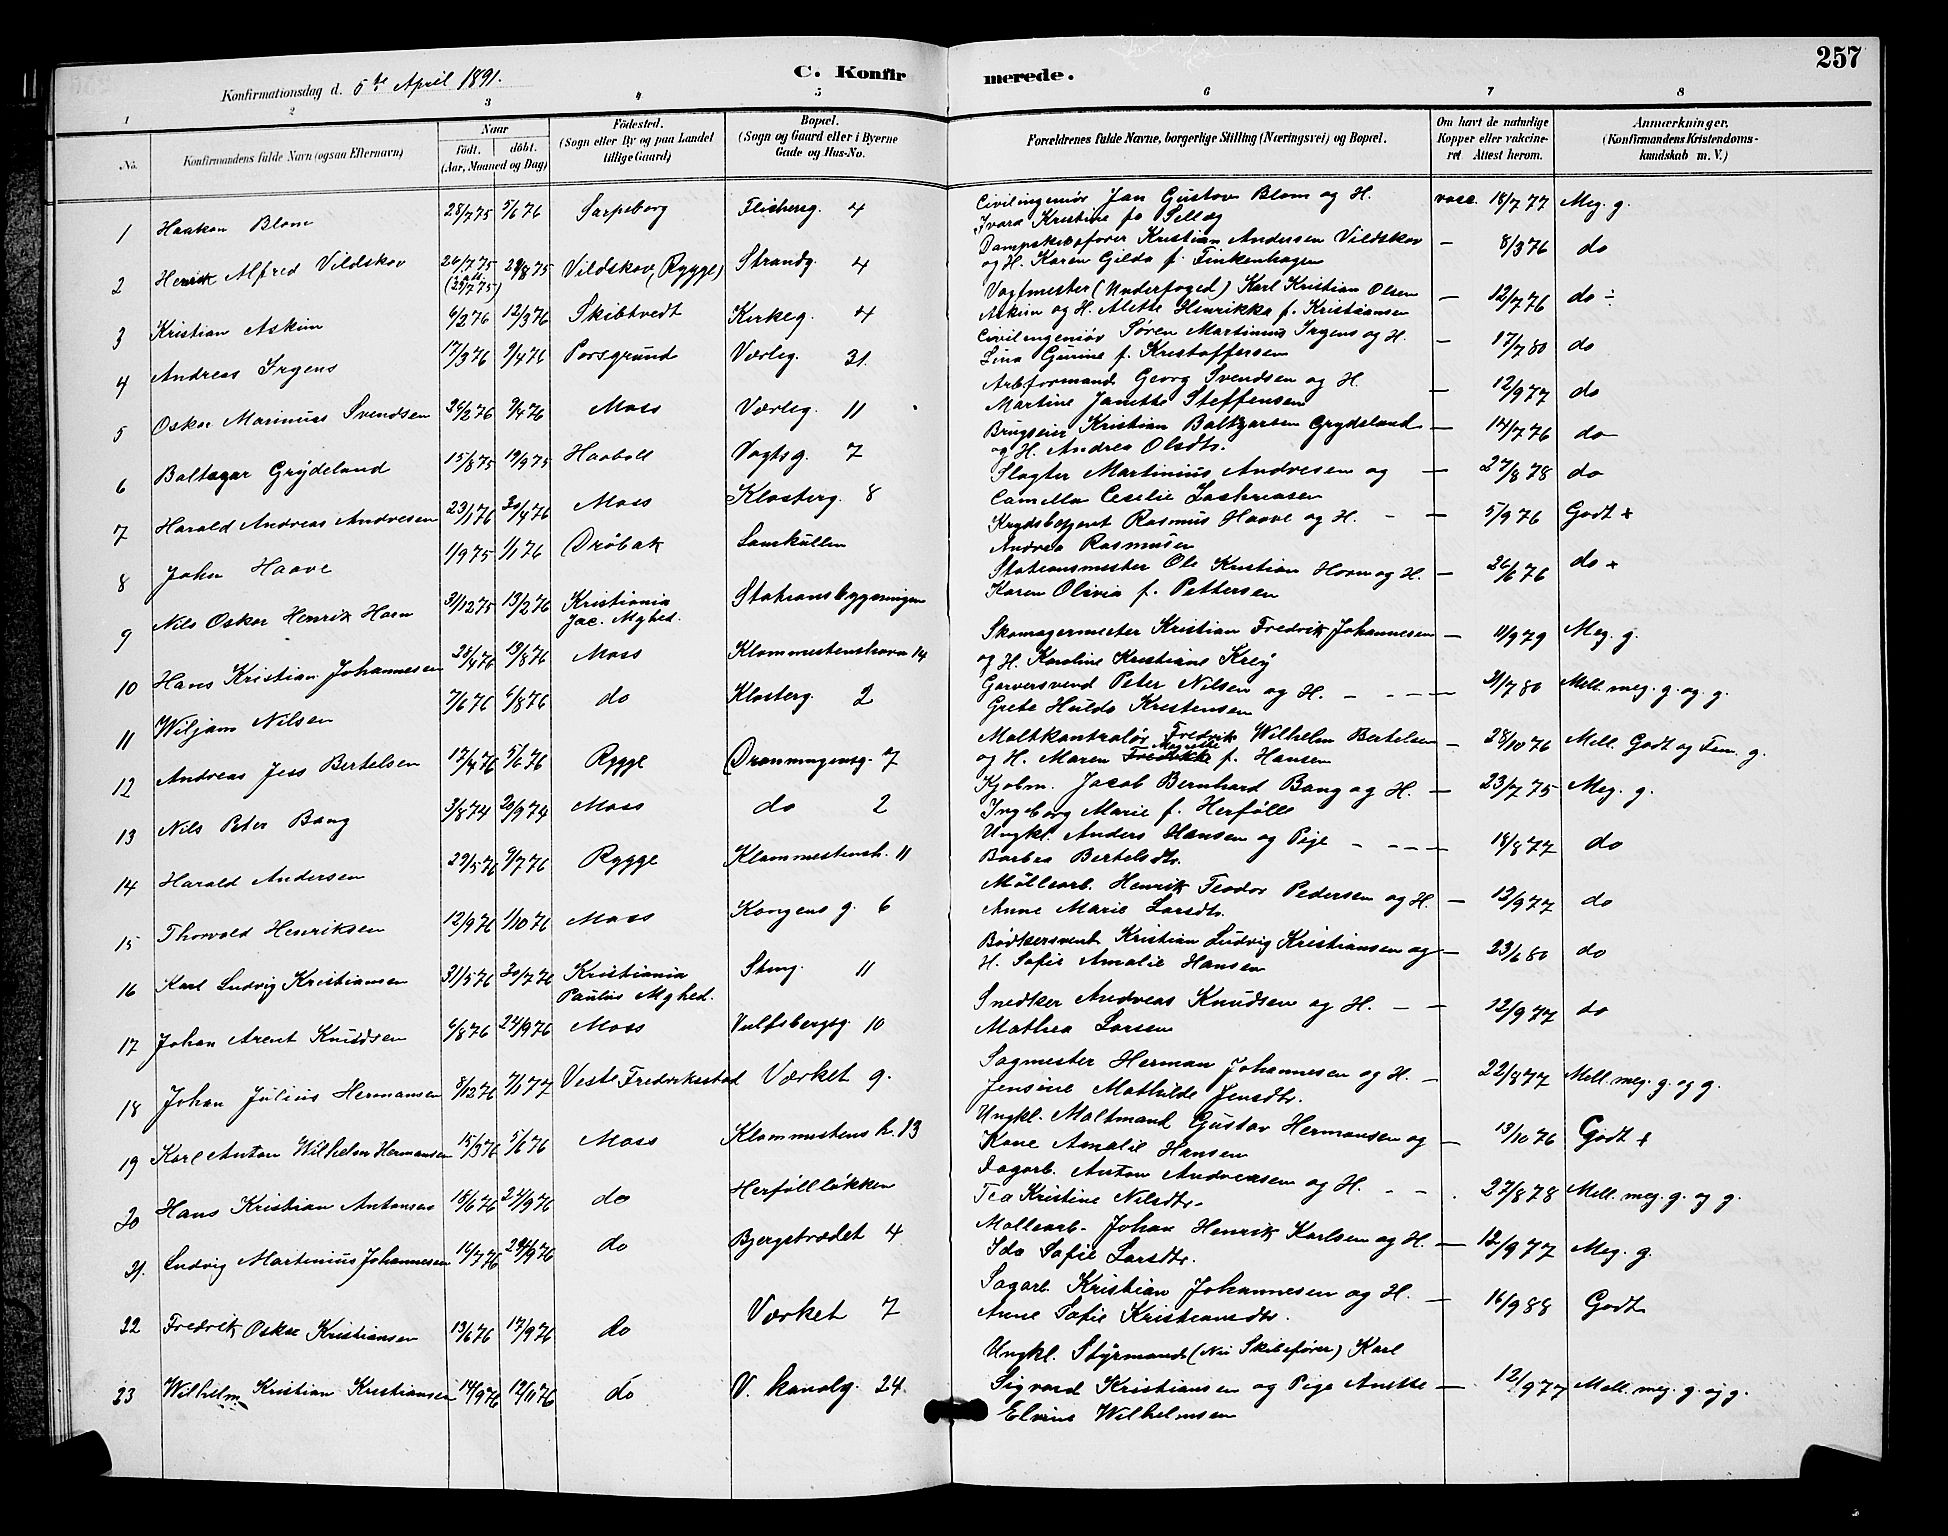 257
Konfirmationsdag d. 5te April 1891.
C. Konfirmerede.
1 2 3 4 5 6 7 8
No. Konfirmandens fulde Navn (ogsaa Efternavn) Naar født. døbt. (Aar, Maaned og Dag) Fødested. (Sogn eller By og paa Landet tillige Gaard) Bopæl. (Sogn og Gaard eller i Byerne Gade og Hus-No. Forældrenes fulde Navne, borgerlige Stilling (Næringsvei) og Bopæl. Om havt de naturlige Kopper eller vakcineret Attest herom. Anmærkninger. (Konfirmandens Kristendomskundskab m. V.)
1 Haakon Blom 28/7 75 5/6 76 Sarpsborg 4 Civilingeniør Jan Gustav Blom og H. vacc. 18/7 77 Meg. g.
2 Henrik Alfred Vildskov 26/7 75 29/8 75 Vildskov (Rygge) Strandg. 4 Dampskibsfører Kristian Andersen Vildskov og H. Karen Gilda f. Finkenhagen — 8/3 76 do
3 Kristian Askim 6/2 76 12/3 76 Skibtvedt Kirkeg. 4 Vagtmester (Underfoged) Karl Kristian Olsen Askim og H. Alette Henrikka f. Kristiansen — 12/7 76 do ÷
4 Andreas Irgens 17/3 76 9/4 76 Porsgrund Værleg. 31. Civilingeniør Søren Martinius Irgens og H. Lina Gurine f. Kristoffersen — 17/7 80 do
5 Oskar Marinius Svendsen 26/2 76 9/4 76 Moss Værleg. 11 Arbformand Georg Svendsen og H. Martine Janette Steffensen — 12/9 77 do
6 Baltazar Grydeland 15/8 75 19/9 75 Haaboll Vogtsg. 7 Brugseier Kristian Baltzarsen Grydeland og H. Andrea Olsdtr. — 14/7 76 do
7 Harald Andreas Andresen 23/1 76 30/4 76 Moss Klosterg. 8 Slagter Martinius Andresen og Camilla Cecilie — 27/8 78 do
8 John Haave 1/9 75 1/1 76 Drøbak Rasmus Haave og H. Andrea Rasmusen — 5/9 76 Godt +
9 Nils Oskar Henrik Horn 31/12 75 13/2 76 Kristiania Jac. Myhed. Stationsbygningen Stationsmester Ole Kristian Horn og H. Karen Olivia f. Pettersen — 26/6 76 do +
10 Hans Kristian Johannesen 28/4 76 13/8 76 Moss Klommestenshavn 14 Skomagermester Kristian Fredrik Johannesen og H. Karoline Kristiane Krey — 11/9 79 Meg. g.
11 Wiljam Nilsen 7/6 76 6/8 76 do Klosterg. 2 Garversvend Peter Nilsen og H. Grete Hulda Kristensen — 31/7 80 Mell. meg. g. og g.
12 Andreas Jess Bertelsen 17/4 76 5/6 76 Rygge Dronningensg. 7 Maltkontrolør Fredrik Wilhelm Bertelsen og H. Maren f. Hansen — 28/10 76 Mell. Godt og Tem. g.
13 Nils Peter Bang 3/8 74 20/9 74 Moss do 2 Kjøbm. Jacob Bernhard Bang og H. Ingeborg Marie f. Herføll — 23/7 75 Meg. g.
14 Harald Andersen 29/5 76 9/7 76 Rygge Klommestensh. 11 Ungkl. Anders Hansen og Pige Barbra Bertelsdtr. — 18/8 77 do
15 Thorvald Henriksen 12/9 76 1/10 76 Moss Kongens g. 6 Møllearb. Henrik Teodor Pedersen og H. Anne Marie Larsdtr. — 12/9 77 do
16 Karl Ludvig Kristiansen 31/5 76 30/7 76 Kristiania Paulus Myhed. Steng. 11 Bødkersvend Kristian Ludvig Kristiansen og H. Sofie Amalie Hansen — 23/6 80 do
17 Johan Arent Knudsen 6/8 76 24/9 76 Moss Vulfsbergsg. 10 Snedker Andreas Knudsen og H. Mathea Larsen — 12/9 77 do
18 Johan Julius Hermansen 8/12 76 7/1 77 Vestre Fredrikstad Værket 9. Sagmester Herman Johannesen og H. Jensine Mathilde Jensdtr. — 22/8 77 Mell. meg. g. og g.
19 Karl Anton Wilhelm Hermansen 15/3 76 5/6 76 Moss Klommestens h. 13 Ungkl. Maltmand Gustav Hermansen og Kone Amalie Hansen — 13/10 76 Godt +
20 Hans Kristian Antonsen 18/6 76 24/9 76 do Herføllløkken Dagarb. Anton Andreasen og H. Tea Kristine Nilsdtr. 27/8 78 Mell. meg. g. og g.
21. Ludvig Martinius Johannesen 16/7 76 24/9 76 do Bjergstrædet 4 Møllearb. Johan Henrik Karlsen og H. Ida Sofie Larsdtr. — 12/9 77 Meg. g.
22 Fredrik Oskar Kristiansen 13/6 76 17/9 76 do Værket 7 Sagarb. Kristian Johannesen og H. Anne Sofie Kristiansdtr. — 16/9 88 Godt
23 Wilhelm Kristian Kristiansen 14/9 76 12/11 76 do V. kanalg. 24. Ungkl. Styrmand (Nu Skibsfører) Karl Sigvard Kristiansen og Pige Anette Elvine Wilhelmsen — 12/9 77 Mell. meg. g. og g.